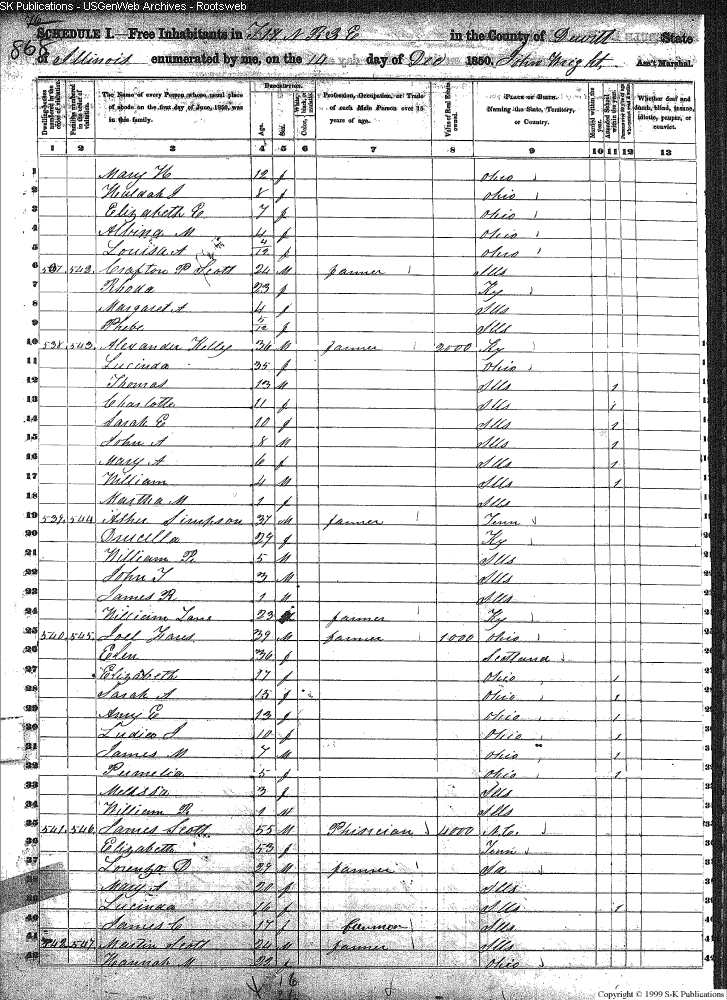 SK Publications - USGenWeb Archives - Rootsweb
868
SCHEDULE I.—Free Inhabitants in T 19 N R 3 E in the County of Dewitt State
of Illinois enumerated by me, on the 14 day of Dec 1850. John Wright Ass't Marshal.
The Name of every Person whose usual place of abode on the first day of June, 1850, was in this family.
Description.
Age.
Sex.
Profession, Occupation, or Trade of each Male Person over 15 years of age.
Value of Real Estate owned.
Place of Birth. Naming the State, Territory, or Country.
Whether deaf and dumb, blind, insane, idiotic, pauper, or convict.
1 2 3 4 5 6 7 8 9 10 11 12 13
1 Mary H 12 f Ohio
2 Huldah J 8 f Ohio
3 Elizabeth E 7 f Ohio
4 Albina M 4 f Ohio
5 Louisa A 4/12 f Ohio
6 537 542 Crafton P Scott 24 M farmer Ills
7 Rhoda 23 f Ky
8 Margaret A 4 f Ills
9 Phebe 5/12 f Ills
10 538 543 Alexander Kelly 36 M farmer 2000 Ky
11 Lucinda 35 f Ohio
12 Thomas 13 M Ills 1
13 Charlotte 11 f Ills 1
14 Sarah E 10 f Ills 1
15 John A 8 M Ills 1
16 Mary A 6 f Ills 1
17 William 4 M Ills 1
18 Martha M 1 f Ills
19 539 544 Asher Simpson 37 M farmer Tenn
20 Drucella 29 f Ky
21 William R 5 M Ills
22 John T 3 M Ills
23 James R 1 M Ills
24 William Lane 23 M farmer Ky
25 540 545 Joel 39 M farmer 1000 Ohio
26 Elen 36 f Scotland
27 Elizabeth 17 f Ohio 1
28 Sarah A 15 f Ohio 1
29 Amy E 13 f Ohio 1
30 J 10 f Ohio 1
31 James M 7 M Ohio 1
32 Permelia 5 f Ohio 1
33 Melissa 3 f Ills
34 William R 1 M Ills
35 541 546 James Scott 55 M Phisician 4000 N.C.
36 Elizabeth 53 f Tenn
37 Lorenzo D 29 M farmer
38 Mary A 20 f Ills
39 Lucinda 16 f Ills 1
40 James C 17 Ills
41 542 547 Martin Scott 24 M farmer Ills
42 Hannah M 22 f Ohio
Copyright © 1999 S-K Publications